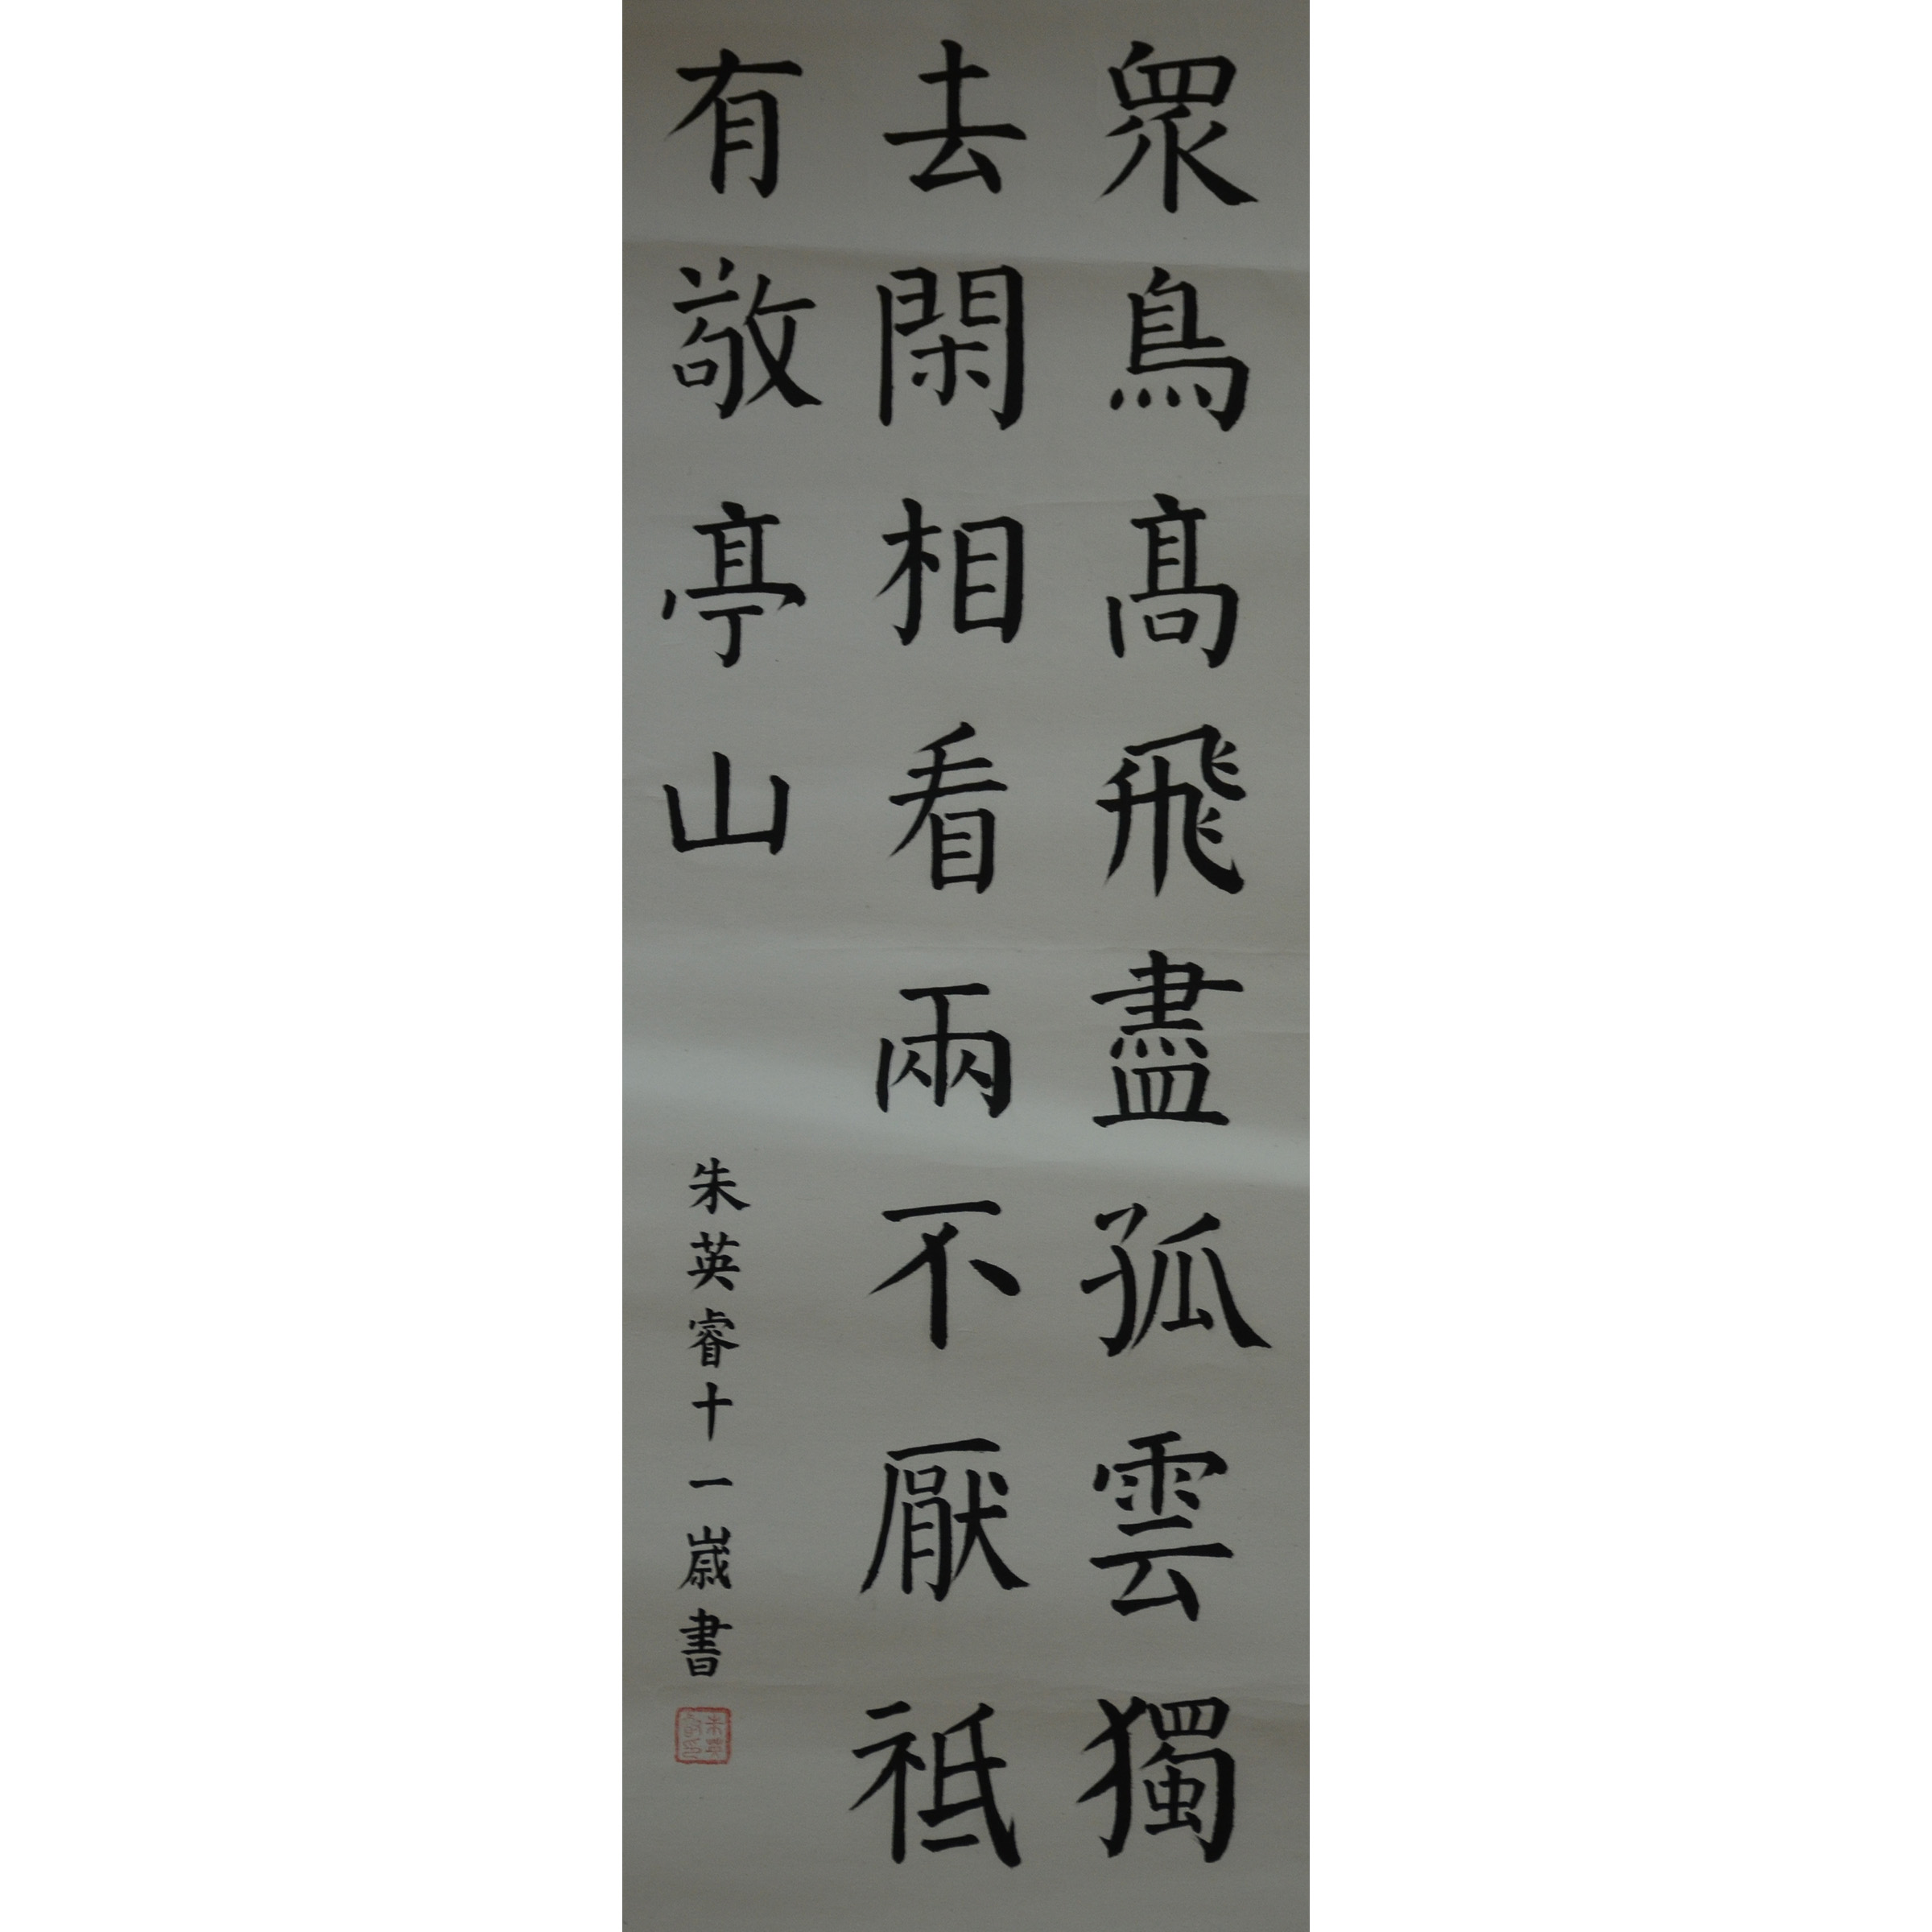 眾鳥髙飛盡孤雲獨
去閑相看兩不厭祗
有敬亭山
朱英睿十一嵗書